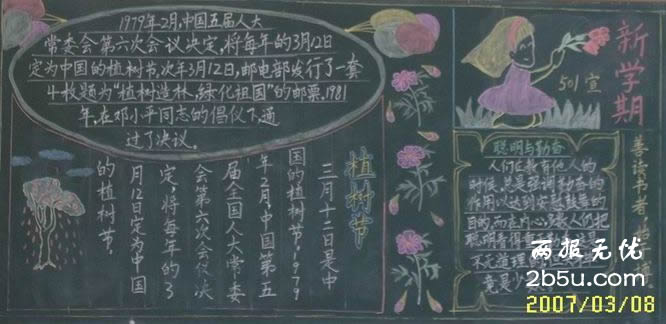 1979年2月,中国五届人大
常委会第六次会议决定,将每年的3月12日
定为中国的植树节,次年3月12日,邮电部发行了一套
4枚题为“植树造林,绿化祖国”的邮票,1981
年,在邓小平同志的倡仪下,通
过了决议。
植树节
三月十二日是中
国的植树节,1979
年2月,中国第五
届全国人大常委
会第六次会仪决
定,将每年的3
月12日定为中国
的植树节。
新学期
501宣
善读书者,
聪明与勤奋
人们在教育他人的
时候,总是强调勤奋的
作用以达到安慰鼓誉的
目的,而在内心,多人们把
聪明看得
不
竟是
两报无忧
2b5u.com
2007/03/08